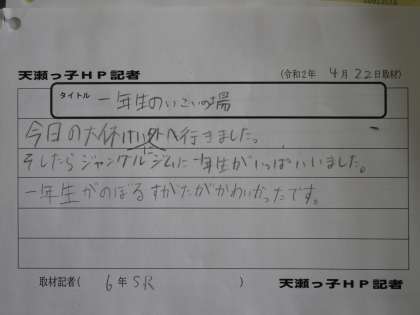 天瀬っ子HP記者
(令和2年 4月22日取材)
タイトル 一年生のいこいの場
今日の大休けい外へ行きました。
に
そしたらジャングルジムに一年生がいっぱいいました。
一年生がのぼるすがたがかわいかったです。
取材記者( 6年SR )
天瀬っ子HP記者